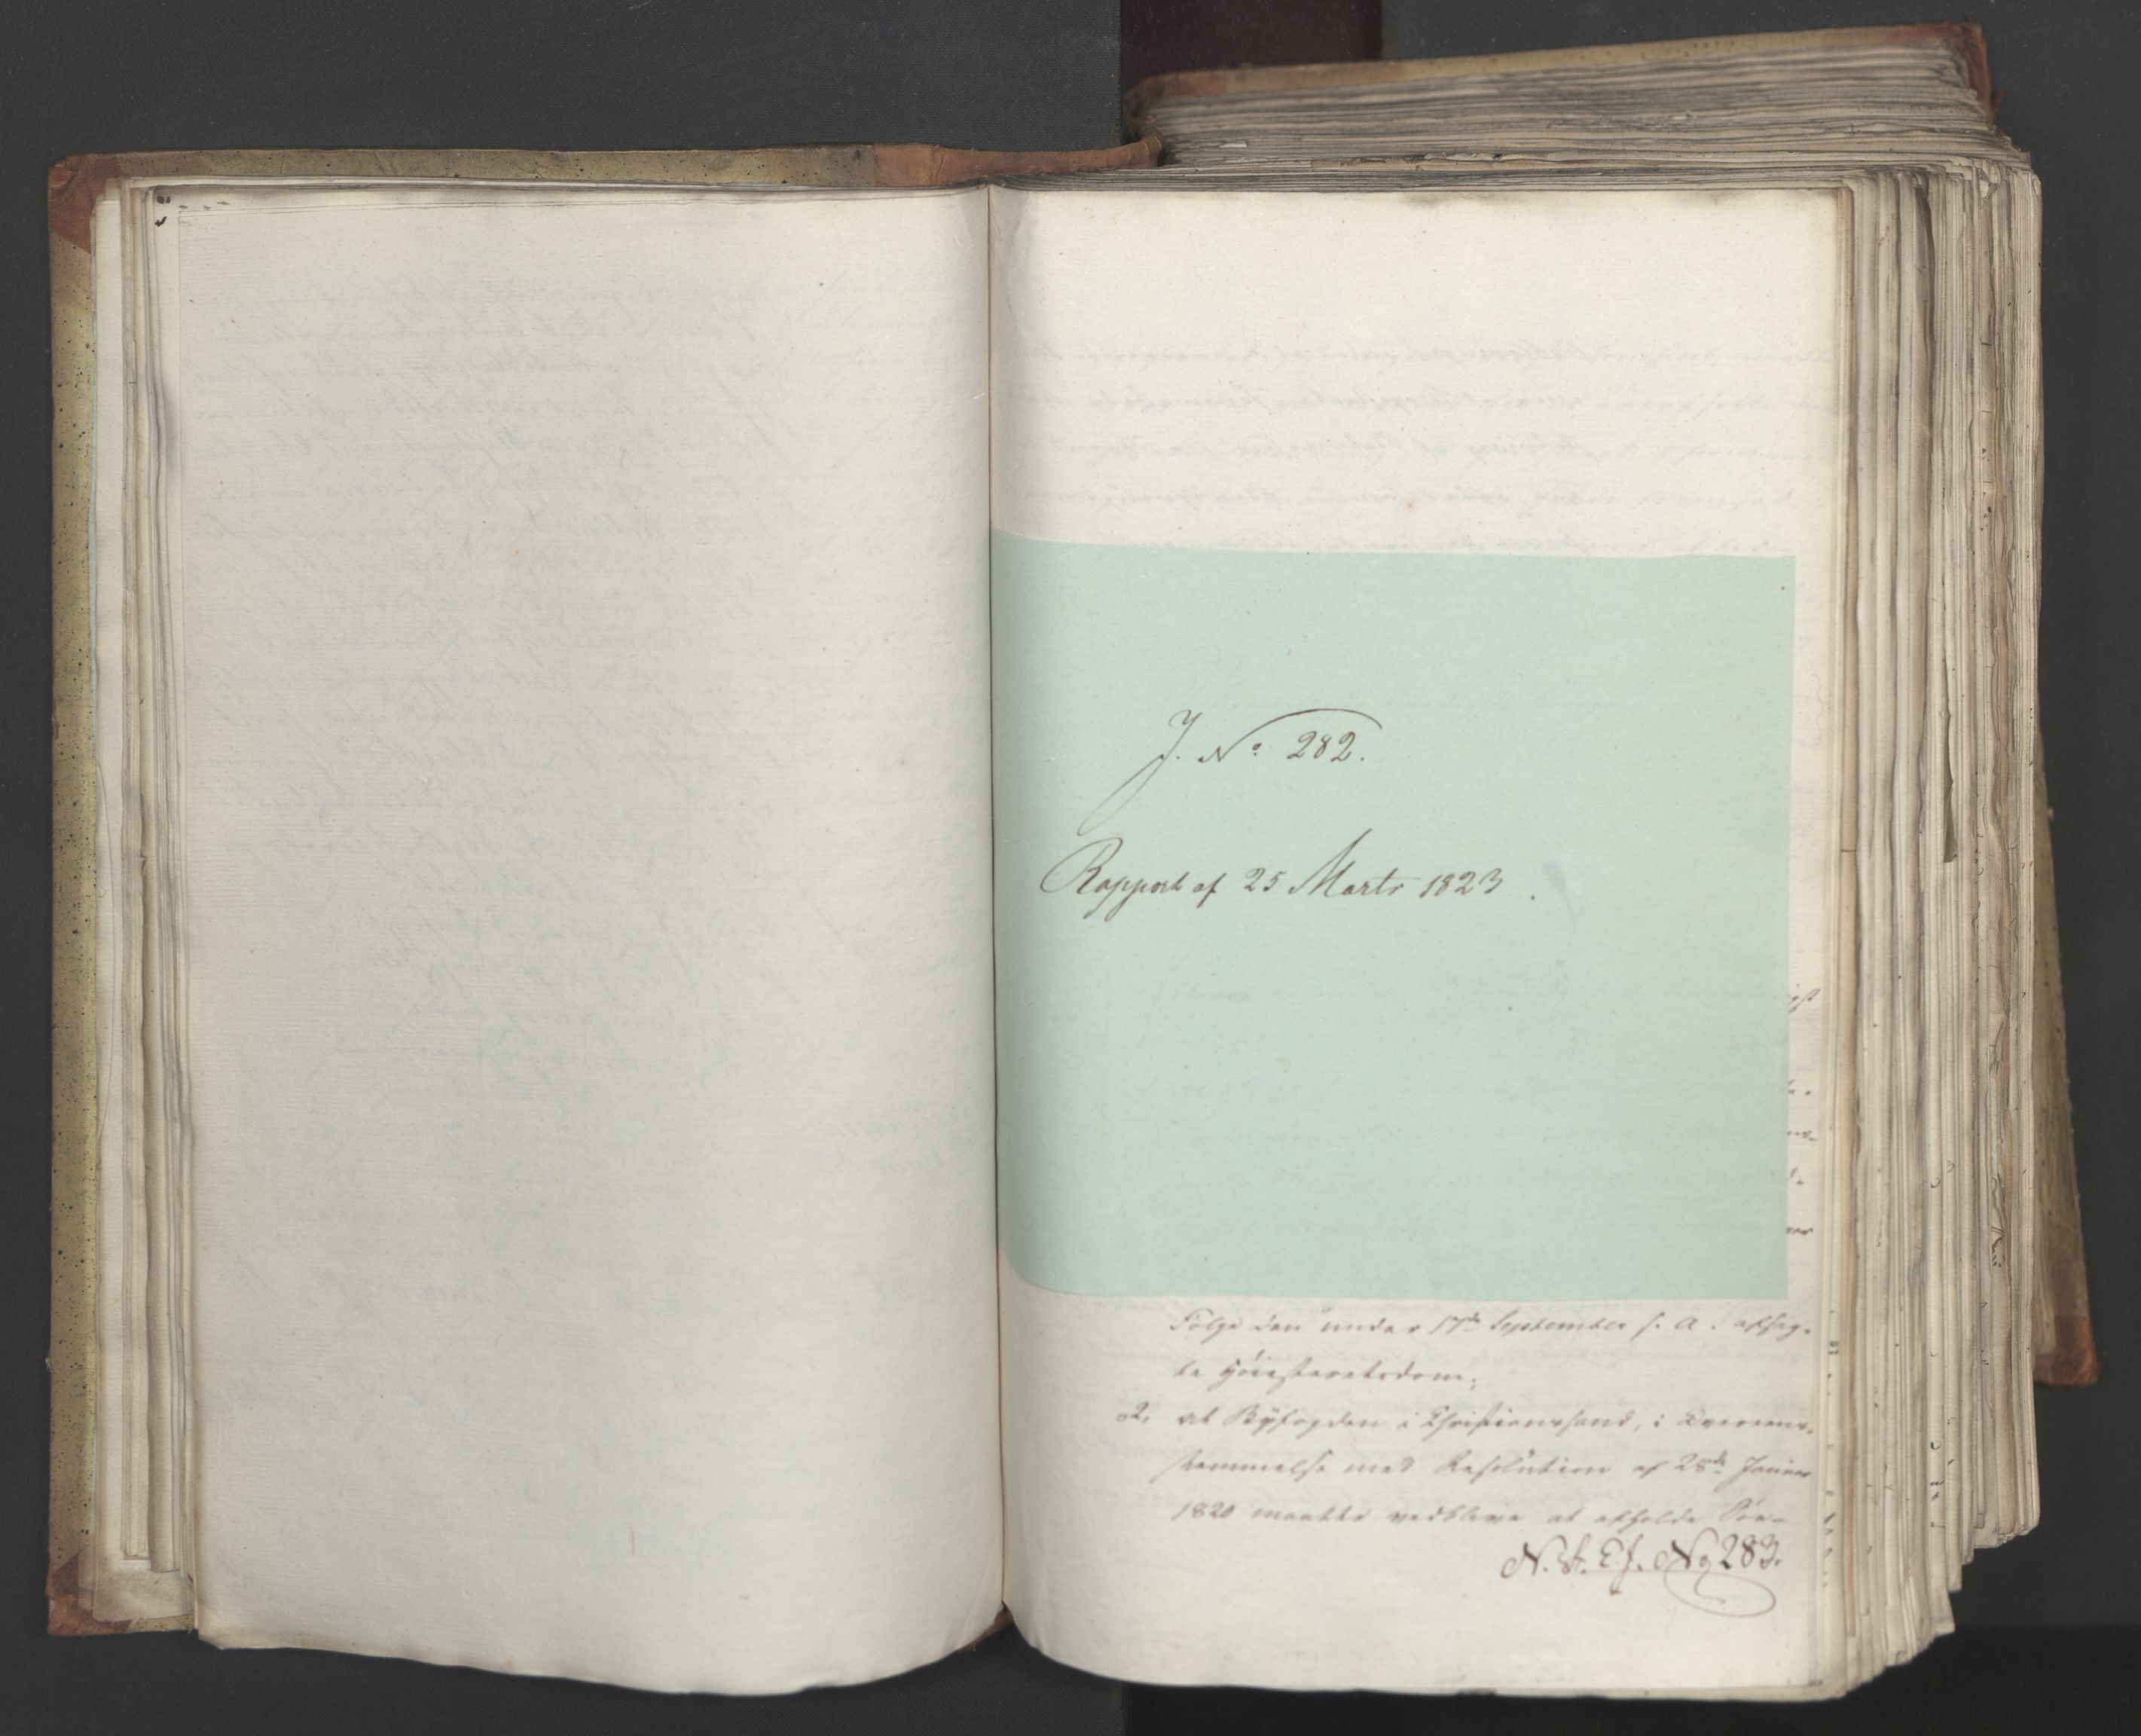 J. No 282.
Rapport af 25 Marts 1823.
Følge den under 17de September s. A. afsag-
te Höiesteretsdom;
2, at Byfogden i Christianssand, i Overeens-
stemmelse med Resolution af 28de Januar
1820 maatte vedblive at afholde Søe-
N. St. E J. No 283.